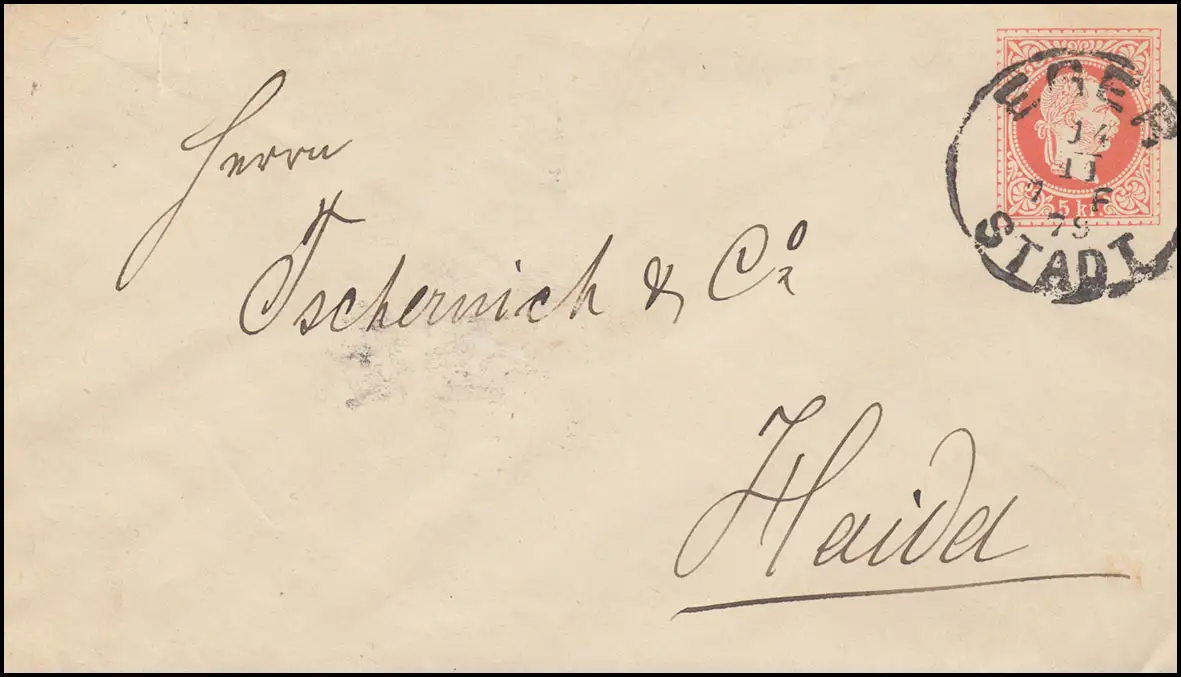 Herrn
Tschernich & Co
Haida
5 kr.
EGER
14
II
F
STADT